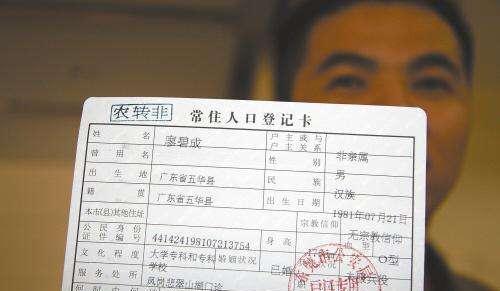 农转非 常住人口登记卡
姓 名 廖碧成 户主或与户主关系 非亲属
曾用名 性别 男
出生地 广东省五华县 民族 汉族
籍贯 广东省五华县 出生日期 1981年07月21日
本市(县)其他住址 宗教信仰 无宗教信仰
公民身份证件编号 441424198107213754 身高 O型
文化程度 大学专科和专科学校 婚姻状况 已婚
服务处所